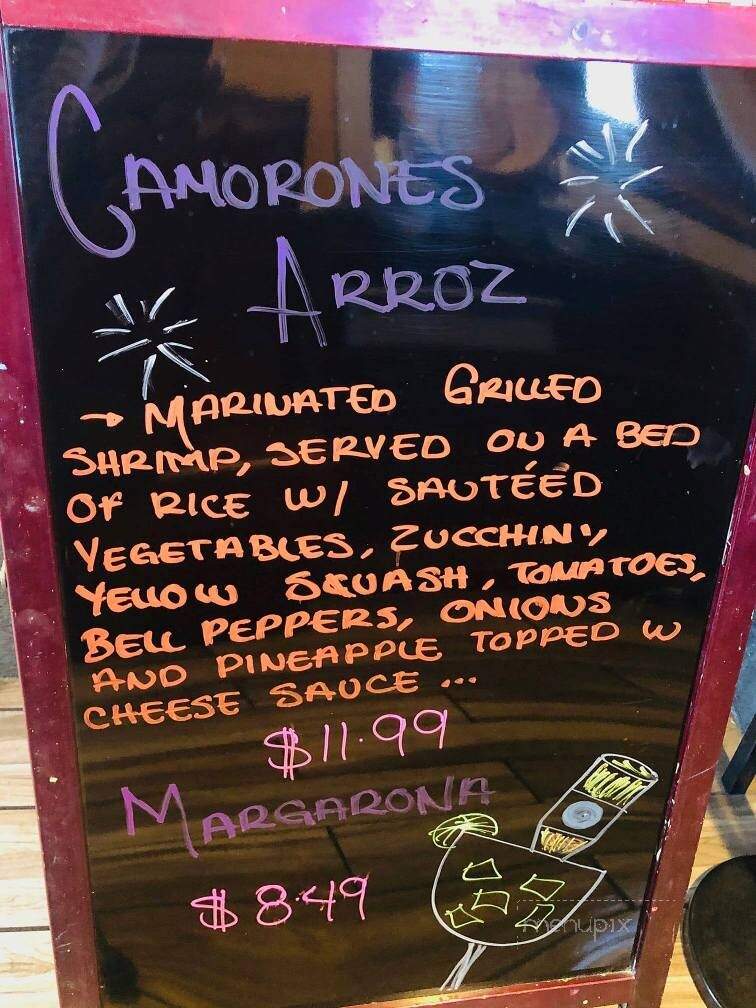 CAMORONES
ARROZ
→ MARINATED GRILLED
SHRIMP, SERVED ON A BED
OF RICE W/ SAUTÉED
VEGETABLES, ZUCCHINI,
YELLOW SQUASH, TOMATOES,
BELL PEPPERS, ONIONS
AND PINEAPPLE TOPPED W
CHEESE SAUCE ...
$11.99
MARGARONA
$8.49
menupix